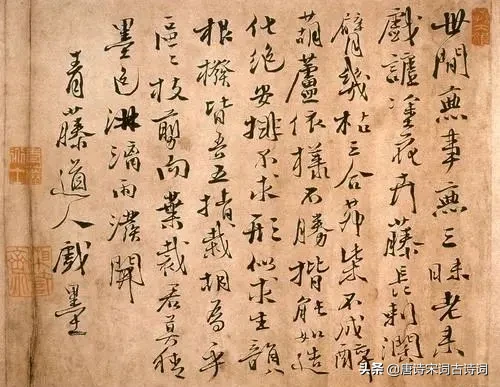 世間無事無三昧老來
戲謔塗花卉藤長刺闊
臂幾枯三合茅柴不成醉
葫蘆依樣不勝揩能如造
化絕安排不求形似求生韻
根撥皆吾五指栽胡為乎
區々枝剪而葉裁君莫猜
墨色淋漓雨撥開
青藤道人戲墨
头条 @唐诗宋词古诗词